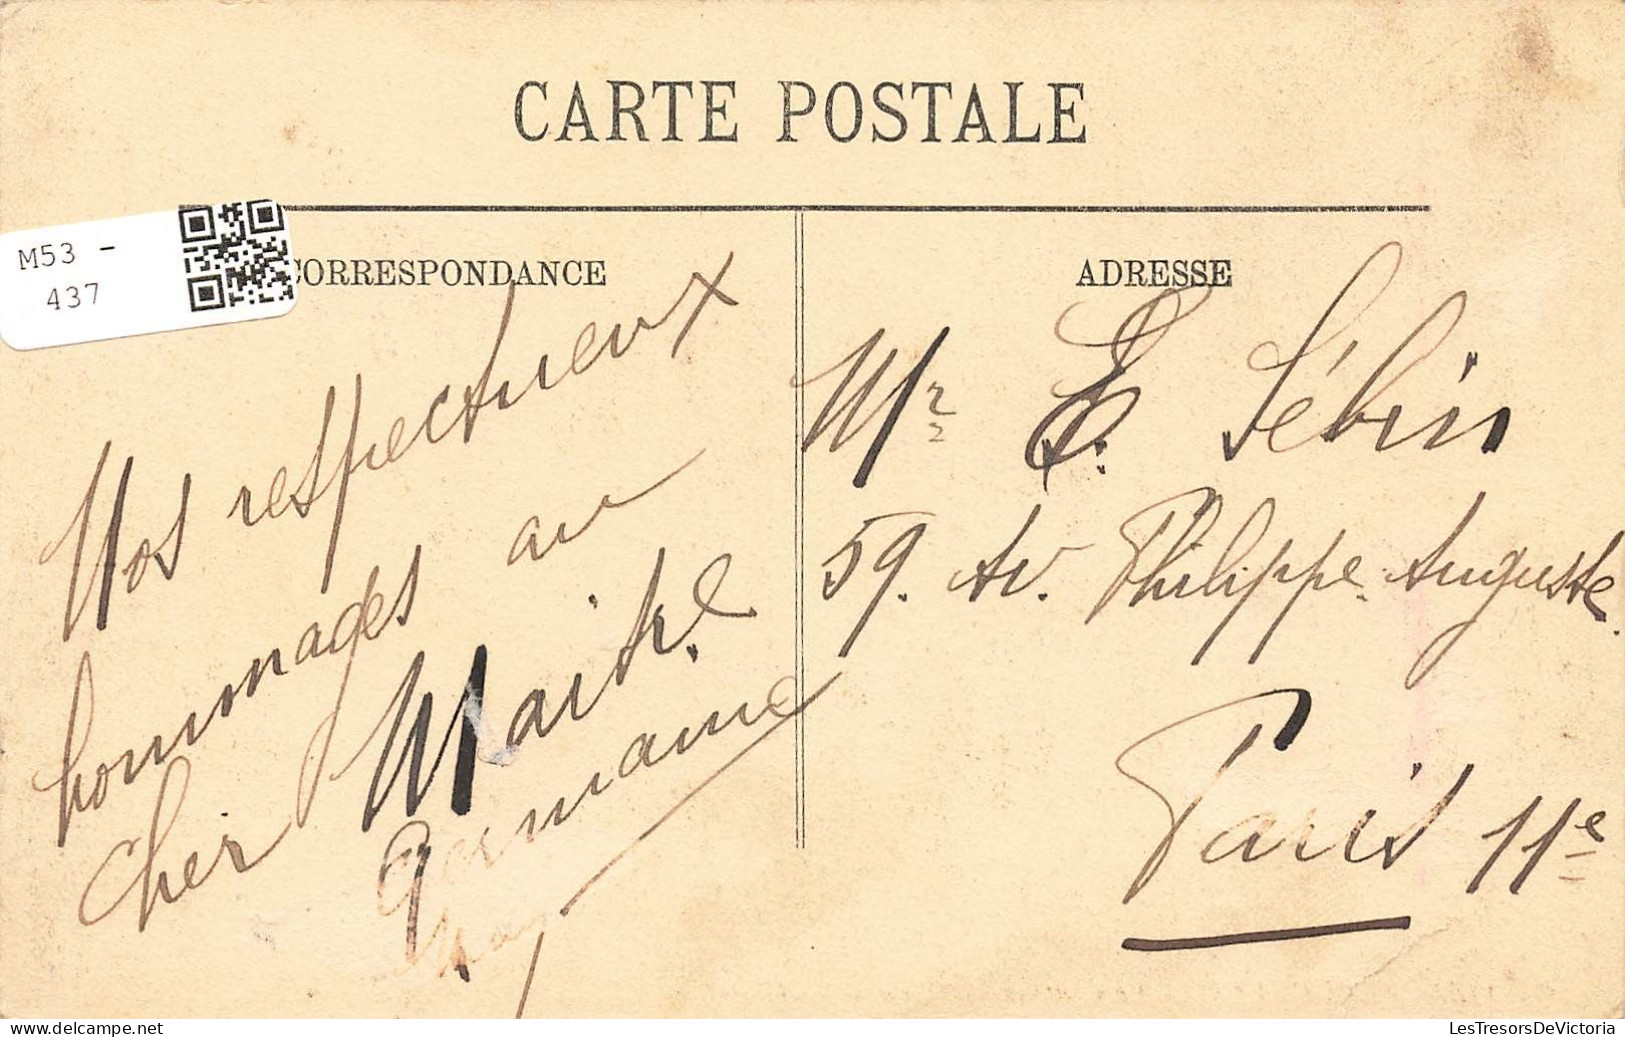 CARTE POSTALE
M53 -
437
CORRESPONDANCE
Nos respectueux
hommages au
cher Maitre
Germaine
ADRESSE
Mr E. Sébin
59. Av. Philippe-Auguste.
Paris 11e
www.delcampe.net
LesTresorsDeVictoria